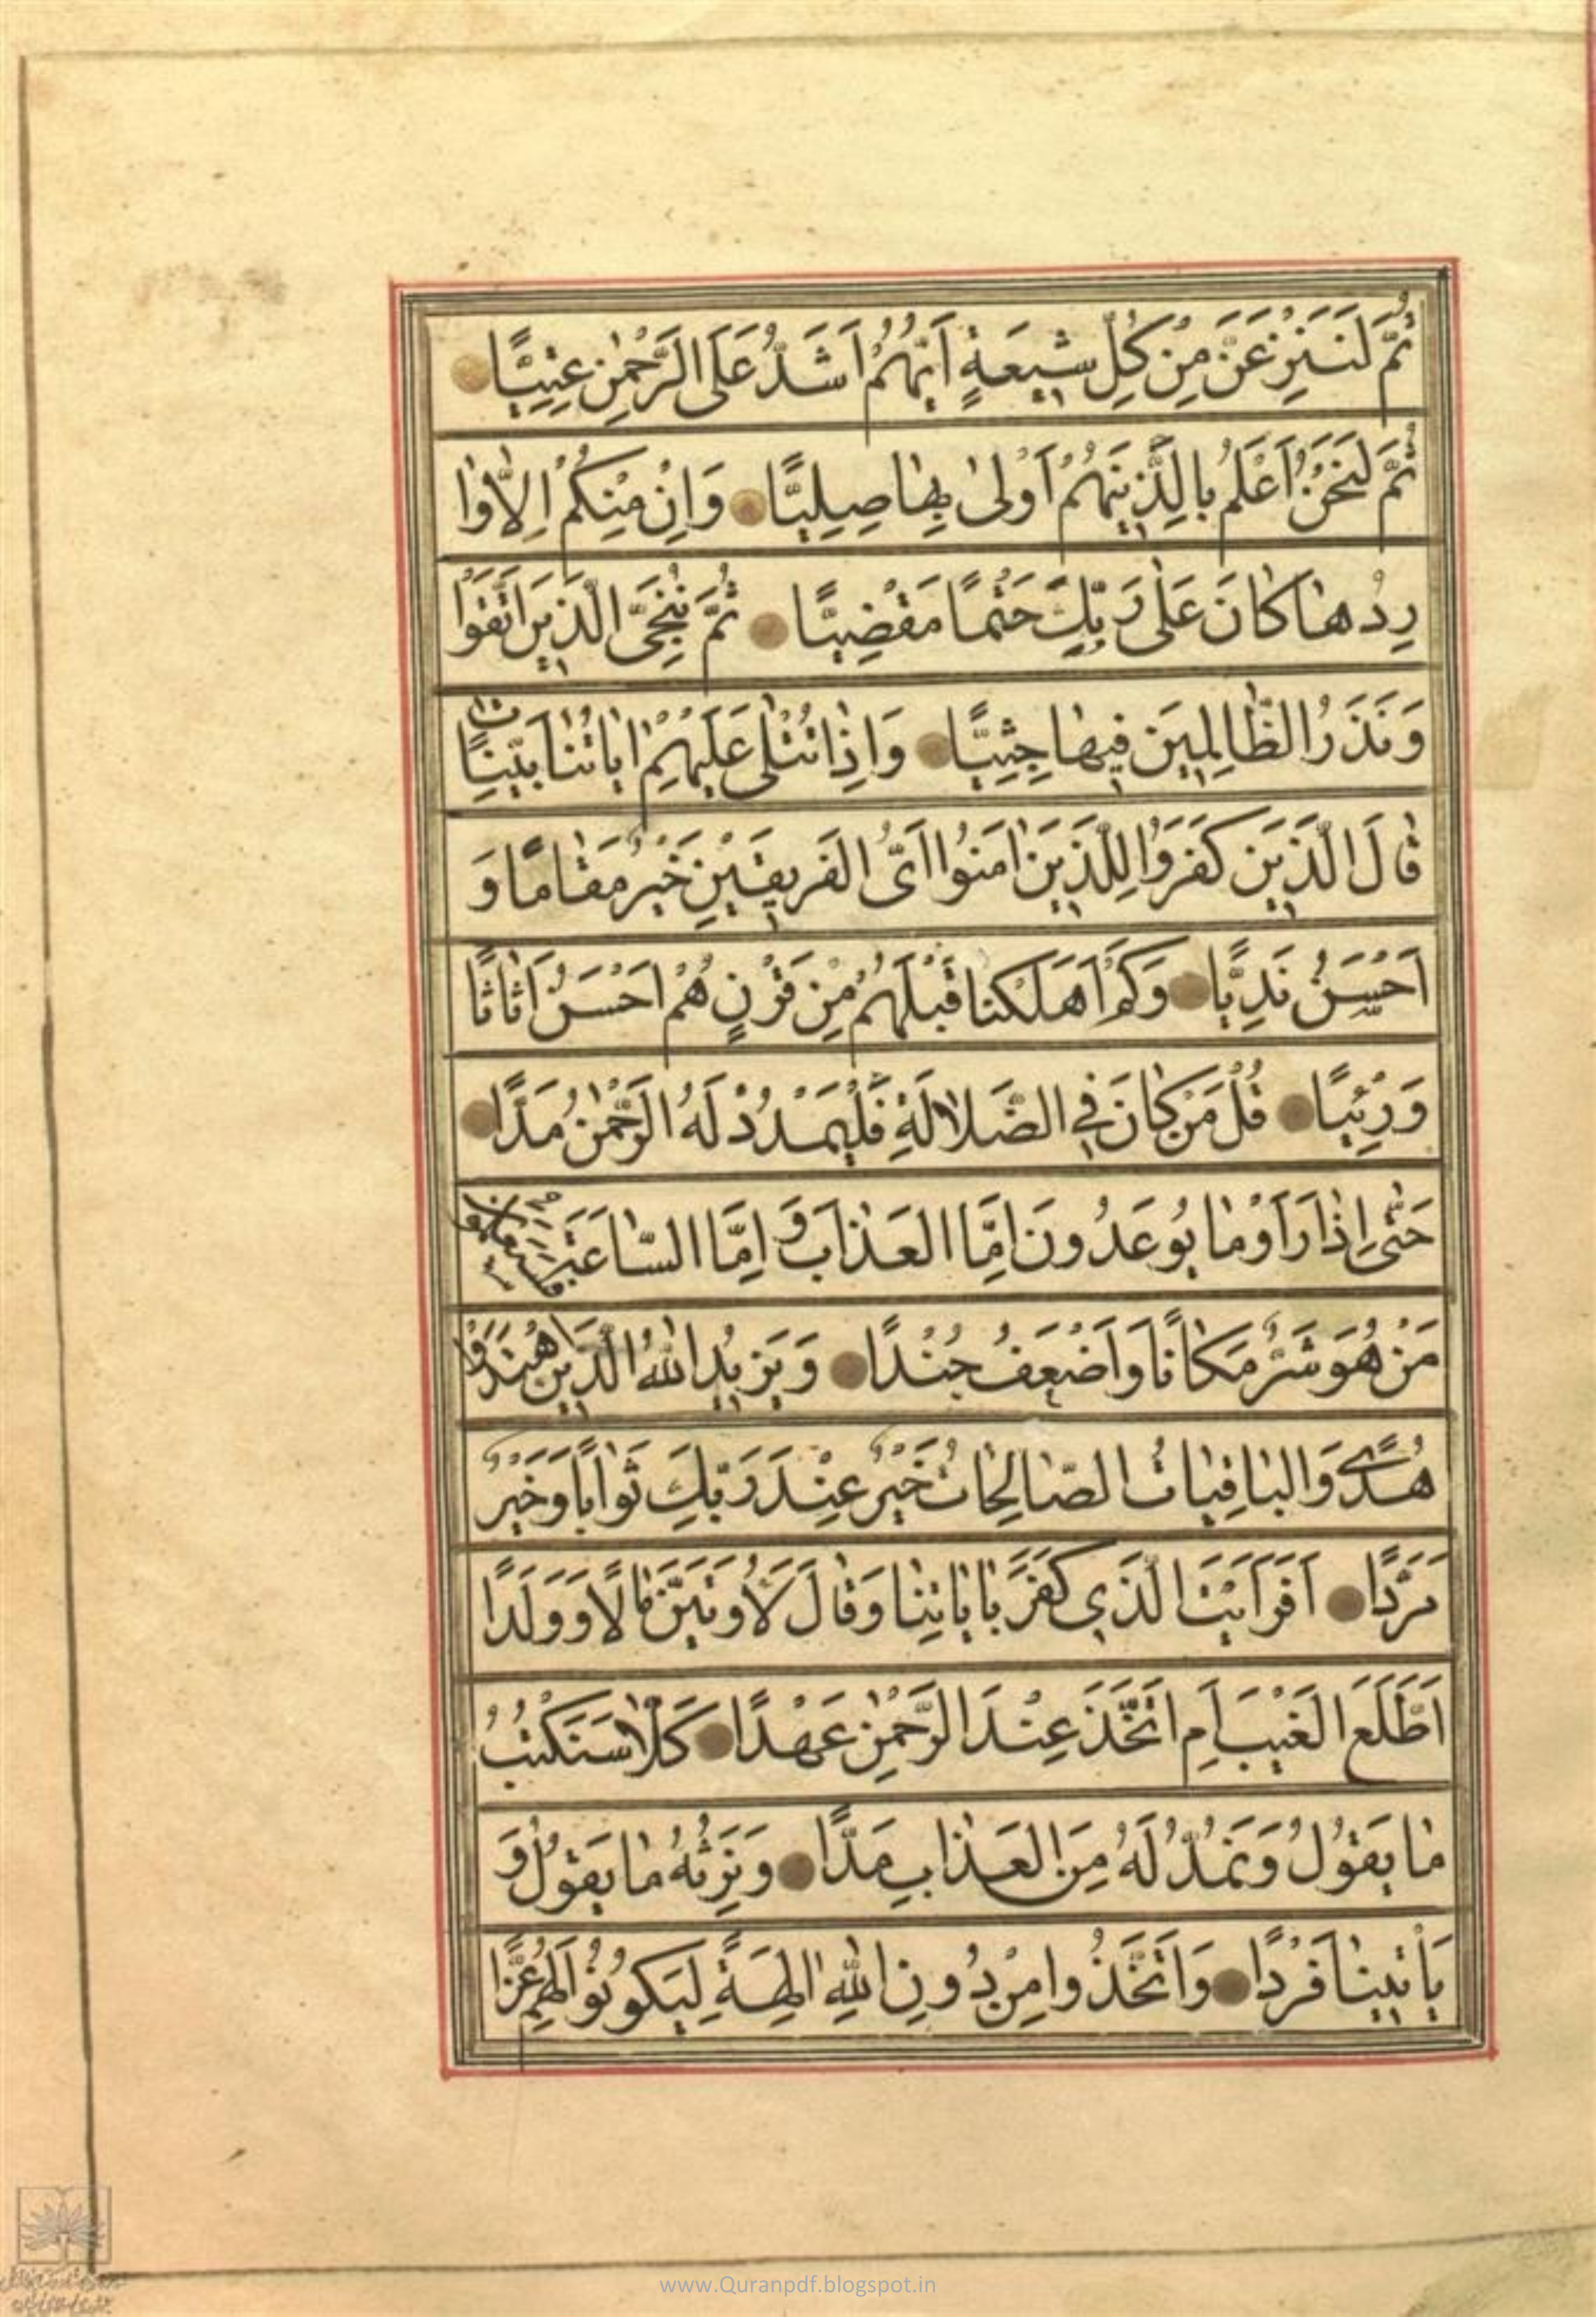 ثُمَّ لَنَنْزِعَنَّ مِنْ كُلِّ شِيعَةٍ اَيُّهُمْ اَشَدُّ عَلَى الرَّحْمٰنِ عِتِيًّا
ثُمَّ لَنَحْنُ اَعْلَمُ بِالَّذِينَ هُمْ اَوْلىٰ بِهٰا صِلِيًّا وَاِنْ مِنْكُمْ اِلاّٰ وٰا
رِدُهٰا كٰانَ عَلىٰ رَبِّكَ حَتْمًا مَقْضِيًّا ثُمَّ نُنَجِّى الَّذِينَ اتَّقَوْا
وَنَذَرُ الظّٰالِمِينَ فِيهٰا جِثِيًّا وَاِذٰا تُتْلىٰ عَلَيْهِمْ اٰيٰاتُنٰا بَيِّنٰاتٍ
قٰالَ الَّذِينَ كَفَرُوا لِلَّذِينَ اٰمَنُوا اَىُّ الفَرِيقَيْنِ خَيْرٌ مَقٰامًا وَ
اَحْسَنُ نَدِيًّا وَكَمْ اَهْلَكْنٰا قَبْلَهُمْ مِنْ قَرْنٍ هُمْ اَحْسَنُ اَثٰاثًا
وَرِئْيًا قُلْ مَنْ كٰانَ فِي الضَّلاٰلَةِ فَلْيَمْدُدْ لَهُ الرَّحْمٰنُ مَدًّا
حَتّٰى اِذٰا رَاَوْا مٰا يُوعَدُونَ اِمَّا العَذٰابَ وَ اِمَّا السّٰاعَةَ فَسَيَعْلَمُونَ
مَنْ هُوَ شَرٌّ مَكٰانًا وَاَضْعَفُ جُنْدًا وَيَزِيدُ اللهُ الَّذِينَ اهْتَدَوْا
هُدًى وَالبٰاقِيٰاتُ الصّٰالِحٰاتُ خَيْرٌ عِنْدَ رَبِّكَ ثَوٰابًا وَخَيْرٌ
مَرَدًّا اَفَرَاَيْتَ الَّذِي كَفَرَ بِاٰيٰاتِنٰا وَقٰالَ لَاُوتَيَنَّ مٰالًا وَوَلَدًا
اَطَّلَعَ الغَيْبَ اَمِ اتَّخَذَ عِنْدَ الرَّحْمٰنِ عَهْدًا كَلاّٰ سَنَكْتُبُ
مٰا يَقُولُ وَنَمُدُّ لَهُ مِنَ العَذٰابِ مَدًّا وَنَرِثُهُ مٰا يَقُولُ وَ
يَأْتِينٰا فَرْدًا وَاتَّخَذُوا مِنْ دُونِ اللهِ اٰلِهَةً لِيَكُونُوا لَهُمْ عِزًّا
www.Quranpdf.blogspot.in